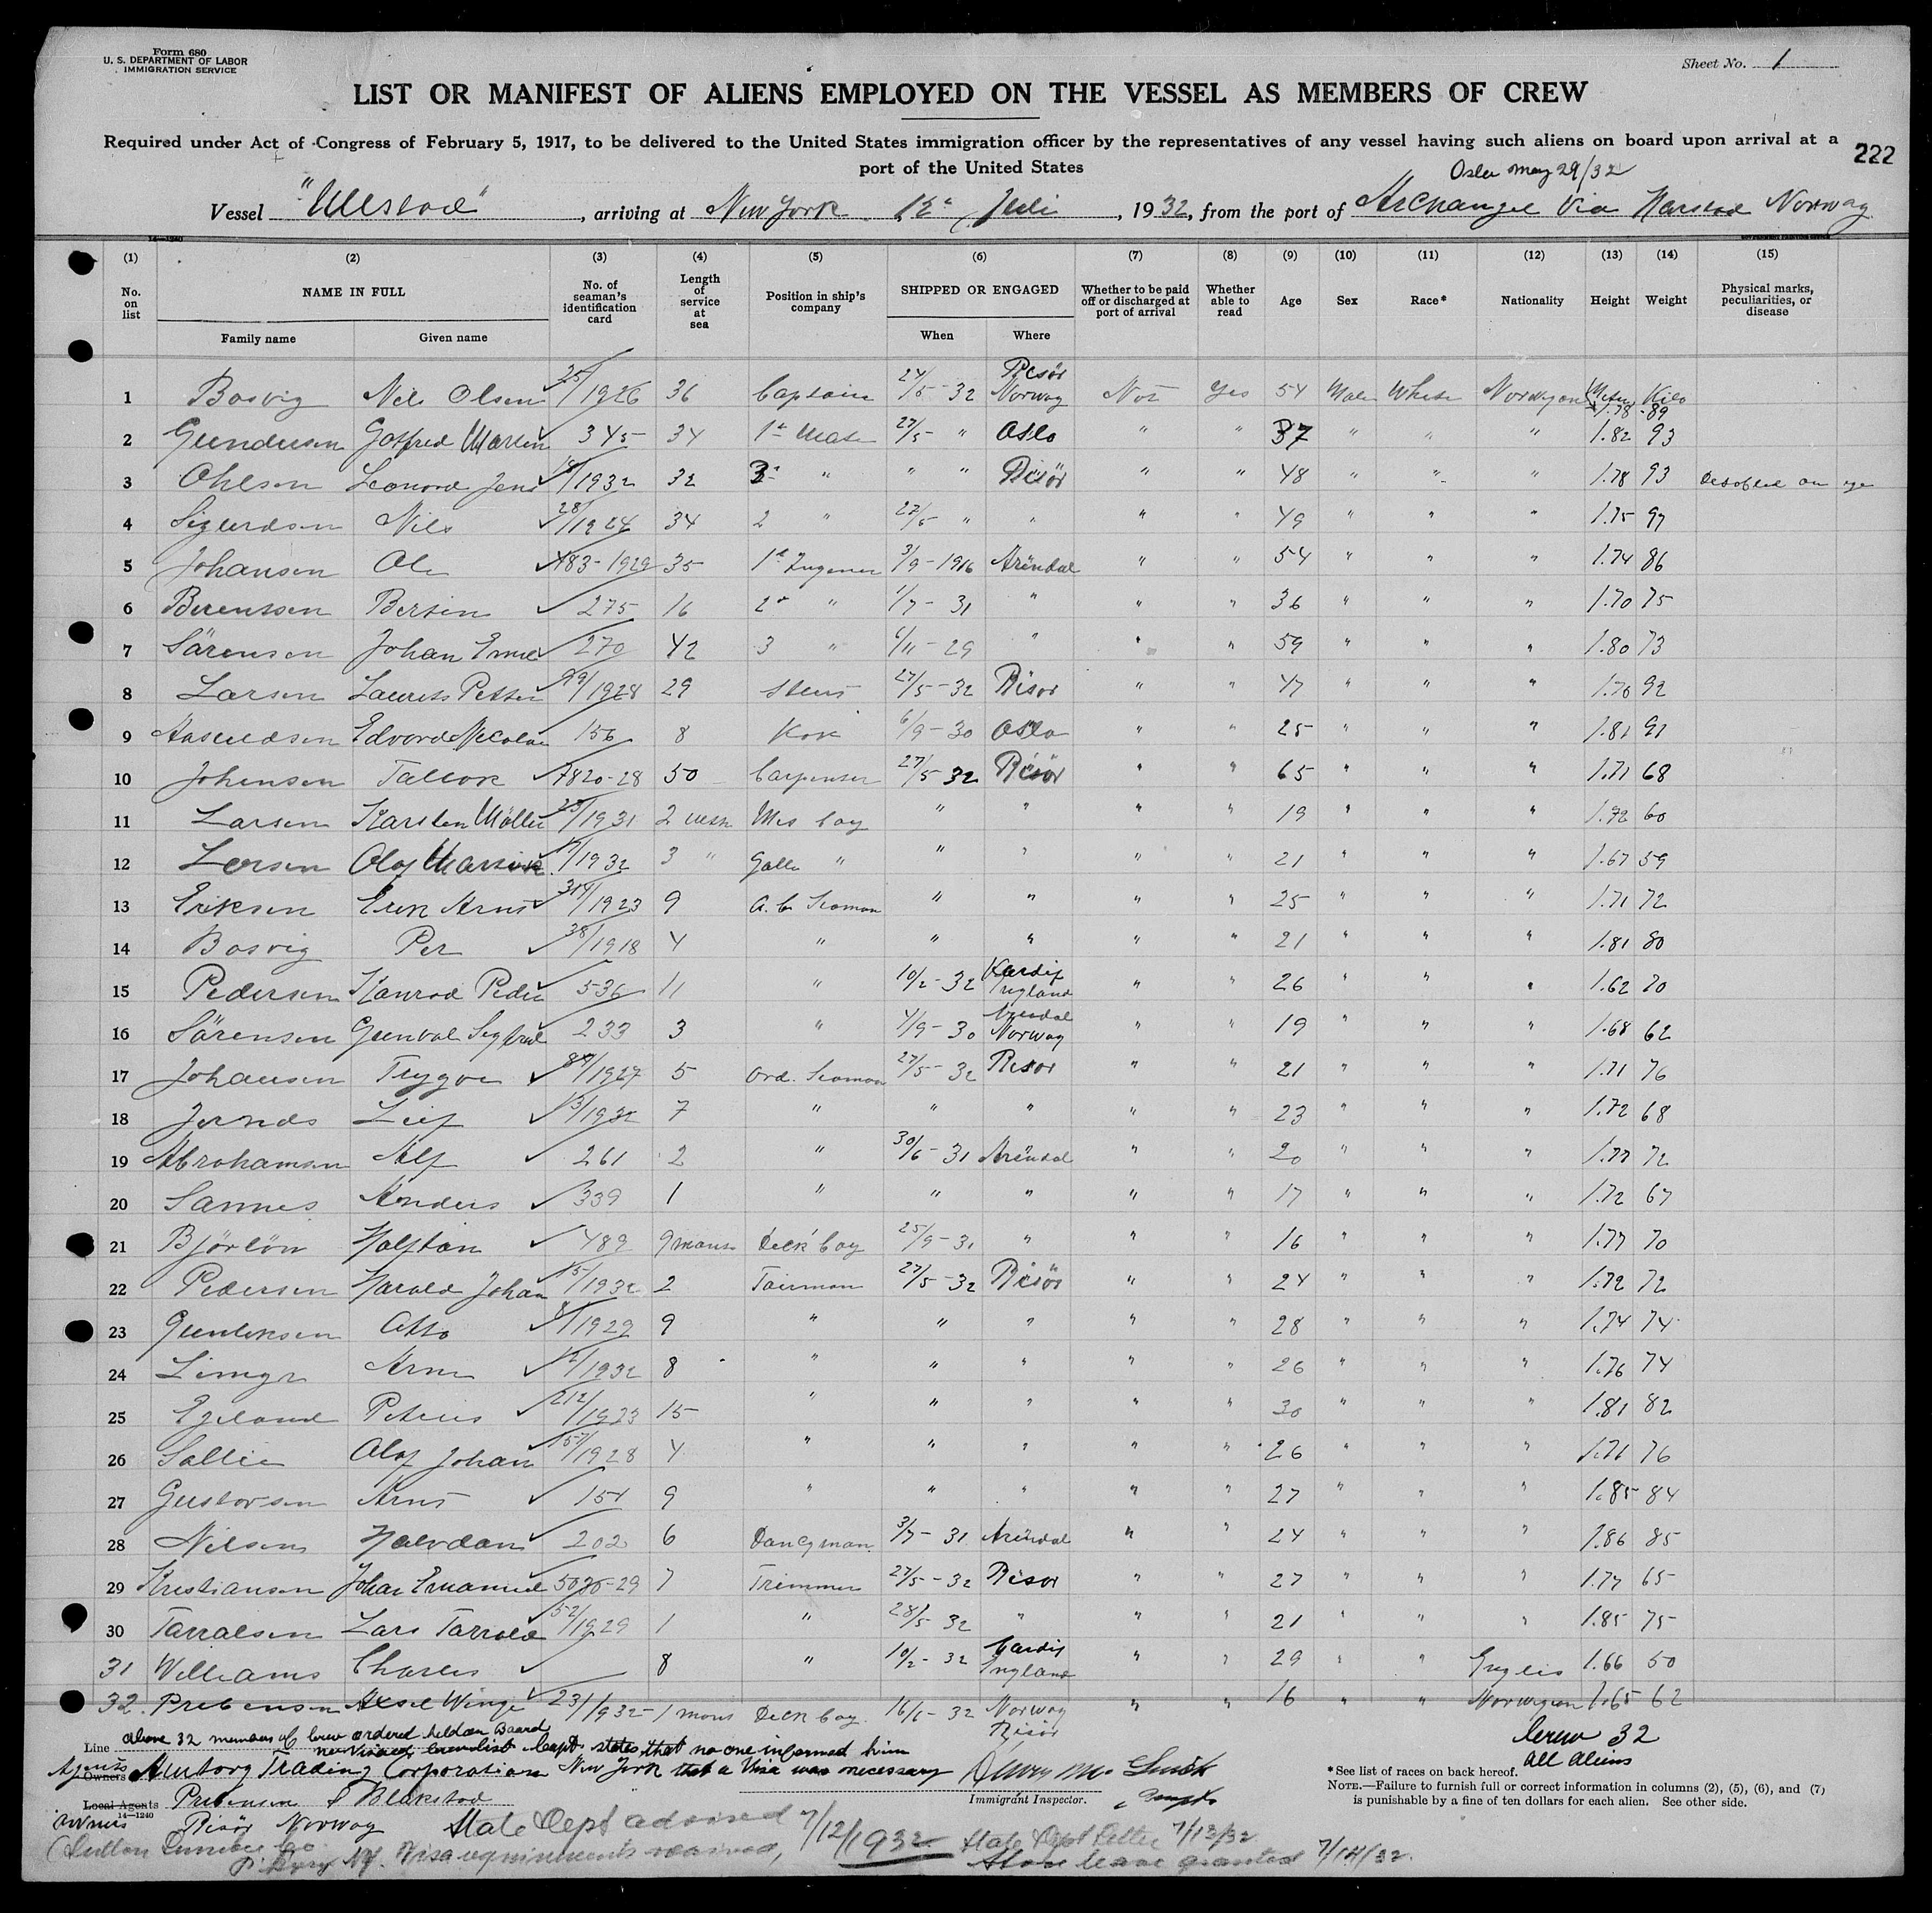 Form 680
U. S. DEPARTMENT OF LABOR
IMMIGRATION SERVICE
Sheet No. 1
LIST OR MANIFEST OF ALIENS EMPLOYED ON THE VESSEL AS MEMBERS OF CREW
Required under Act of Congress of February 5, 1917, to be delivered to the United States immigration officer by the representatives of any vessel having such aliens on board upon arrival at a
port of the United States
222
Oslo May 29/32
Vessel , arriving at New York Juli , 1932, from the port of Archangel Via Harstad Norway
(1) (2) (3) (4) (5) (6) (7) (8) (9) (10) (11) (12) (13) (14) (15)
No. on list NAME IN FULL Family name Given name No. of seaman's identification card Length of service at sea Position in ship's company SHIPPED OR ENGAGED When Where Whether to be paid off or discharged at port of arrival Whether able to read Age Sex Race* Nationality Height Weight Physical marks, peculiarities, or disease
1 Bosvig Nils Olsen 25/1926 36 Captain 24/5-32 Risör Norway Not Yes 54 Male White Norwegian Meter 1.78 Kilo 89
2 Gundersen Gotfred Martin 345 34 1st Mate 27/5 " Oslo " " 37 " " " 1.82 93
3 Ohlson Leonard Jens 18/1932 32 " " " Risör " " 48 " " " 1.78 93
4 Sigurdson Nils 28/1924 34 2 " 27/5 " " " " 49 " " " 1.75 97
5 Johansen Ole 483-1929 35 1st 3/9-1916 Arendal " " 54 " " " 1.74 86
6 Berentsen Bertin 275 16 2 " 1/7-31 " " " 36 " " " 1.70 75
7 Sörensen Johan 270 42 3 " 6/11-29 " " " 59 " " " 1.80 73
8 Larsen Laurits Petter 99/1928 29 27/5-32 Risör " " 47 " " " 1.70 92
9 Edvard 156 8 Kok 6/9-30 Oslo " " 25 " " " 1.81 91
10 Johensen Tallok 7820-28 50 Carpenter 27/5 32 Risör " " 65 " " " 1.71 68
11 Larsen Karsten Möller 25/1931 2 Mes boy " " " " 19 " " " 1.72 60
12 Larsen Olaf /1932 3 " " " " " " 21 " " " 1.67 59
13 Eriksen Erik Arnt /1923 9 A. b. Seaman " " " " 25 " " " 1.71 72
14 Bosvig Per 38/1918 4 " " " " " 21 " " " 1.81 80
15 Pedersen Konrad Peder 536 11 " 10/2-32 Kardif England " " 26 " " " 1.62 70
16 Sörensen Gunval 233 3 " 4/9-30 Arendal Norway " " 19 " " " 1.68 62
17 Johansen Trygve /1927 5 Ord. Seaman 27/5-32 Risör " " 21 " " " 1.71 76
18 Leif 13/1932 7 " " " " " 23 " " " 1.72 68
19 Abrahamsen Alf 261 2 " 30/6-31 Arendal " " 20 " " " 1.77 72
20 Sannes Anders 339 1 " " " " " 17 " " " 1.72 67
21 Halfdan 489 9 Deck boy 25/9-31 " " " 16 " " " 1.77 70
22 Pedersen Harald Johan 15/1932 2 27/5-32 Risör " " 24 " " " 1.72 72
23 Otto 8/1929 9 " " " " " 28 " " " 1.74 74
24 Arne 12/1932 8 " " " " " 26 " " " 1.76 74
25 Egeland 212/1923 15 " " " " " 30 " " " 1.81 82
26 Olaf Johan 157/1928 4 " " " " " 26 " " " 1.71 76
27 Gustavsen Arnt 154 9 " " " " " 27 " " " 1.85 84
28 Nilsen Halvdan 202 6 3/7-31 Arendal " " 24 " " " 1.86 85
29 Kristiansen Johan Emanuel 7 Trimmer 27/5-32 Risör " " 27 " " " 1.77 65
30 Lars 52/1929 1 " 28/5 32 " " " 21 " " " 1.85 75
31 Williams Charles 8 " 10/2-32 Cardif England " " 29 " " Englis 1.66 50
32. Prebensen 231/1932 1 Deck boy 16/6-32 Norway Risör " " 16 " " Norwegian 1.65 62
Line above 32 members of crew ordered held on Board
no visaed crewlist Capt. states that no one informed him
Trading Corporation New York that a Visa was necessary
Agents Owners
Crew 32
All Aliens
Immigrant Inspector.
* See list of races on back hereof.
NOTE.—Failure to furnish full or correct information in columns (2), (5), (6), and (7)
is punishable by a fine of ten dollars for each alien. See other side.
Local Agents Prebensen & Blakstad
14—1240
Owners Risör Norway
State Dept advised 7/12/1932 State Dept Letter 7/13/32
Visa requirements waived, Shore leave granted 7/14/32.